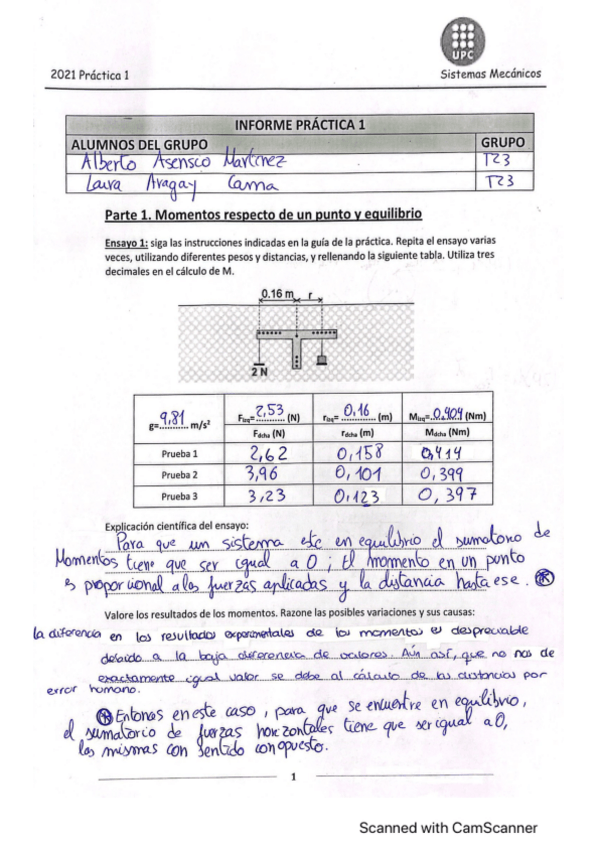 UPC
2021 Práctica 1
Sistemas Mecánicos
INFORME PRÁCTICA 1
ALUMNOS DEL GRUPO GRUPO
Alberto Asensco Martínez T23
Laura Aragay Cama T23
Parte 1. Momentos respecto de un punto y equilibrio
Ensayo 1: siga las instrucciones indicadas en la guía de la práctica. Repita el ensayo varias
veces, utilizando diferentes pesos y distancias, y rellenando la siguiente tabla. Utiliza tres
decimales en el cálculo de M.
0.16 m r
2 N
g=9,81 m/s² Fizq=2,53 (N) rizq= 0,16 (m) Mizq=0.404 (Nm)
Fdcha (N) rdcha (m) Mdcha (Nm)
Prueba 1 2,62 0,158 0,414
Prueba 2 3,96 0,101 0,399
Prueba 3 3,23 0,123 0,397
Explicación científica del ensayo:
Para que un sistema este en equilibrio el sumatorio de
Momentos tiene que ser igual a 0 ; El momento en un punto
es proporcional a las fuerzas aplicadas y la distancia hasta ese. *
Valore los resultados de los momentos. Razone las posibles variaciones y sus causas:
la diferencia en los resultados experimentales de los momentos es despreciable
debido a la baja diferencia de valores. Aún así, que no nos de
exactamente igual valor se debe al cálculo de las distancias por
error humano.
* Entonces en este caso, para que se encuentre en equilibrio,
el sumatorio de fuerzas horizontales tiene que ser igual a 0,
las mismas con sentido contrapuesto.
1
Scanned with CamScanner